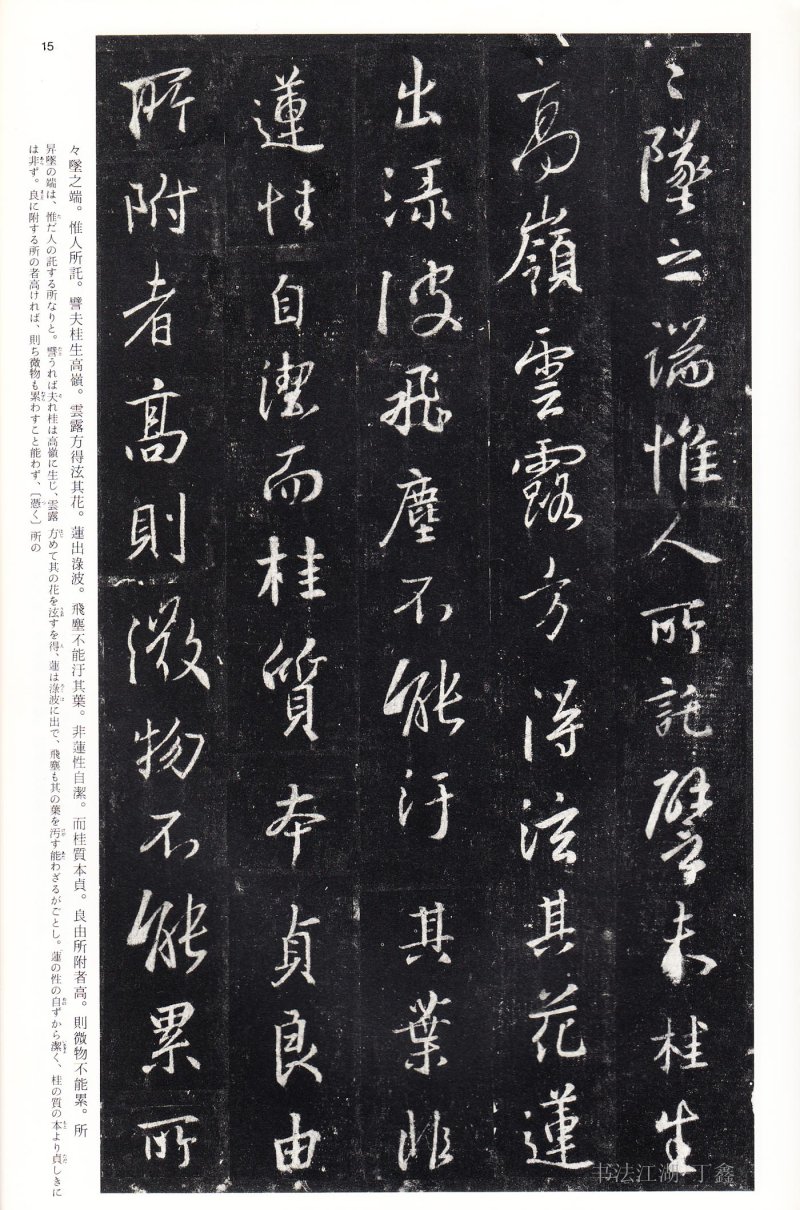 々墜之端惟人所託譬夫桂生
高嶺雲露方得泫其花蓮
出渌波飛塵不能汙其葉非
蓮性自潔而桂質本貞良由
所附者高則微物不能累所
々墜之端。惟人所託。譬夫桂生高嶺。雲露方得泫其花。蓮出淥波。飛塵不能汙其葉。非蓮性自潔。而桂質本貞。良由所附者高。則微物不能累。所
昇墜の端は、惟だ人の託する所なりと。譬うれば夫れ桂は高嶺に生じ、雲露方めて其の花を泫すを得、蓮は淥波に出で、飛塵も其の葉を汚す能わざるがごとし。蓮の性の自ずから潔く、桂の質の本より貞しきに
は非ず。良に附する所の者高ければ、則ち微物も累わすこと能わず、〔憑く〕所の
15
书法江湖 丁鑫